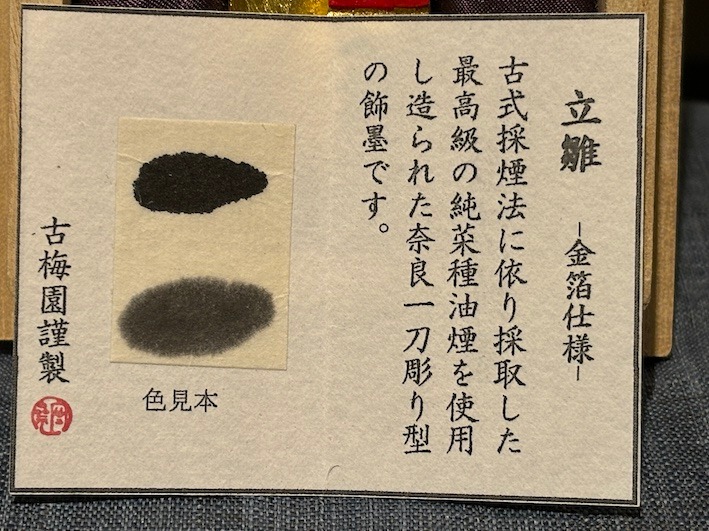 立雛 ー金箔仕様ー
古式採煙法に依り採取した
最高級の純菜種油煙を使用
し造られた奈良一刀彫り型
の飾墨です。
色見本
古梅園謹製